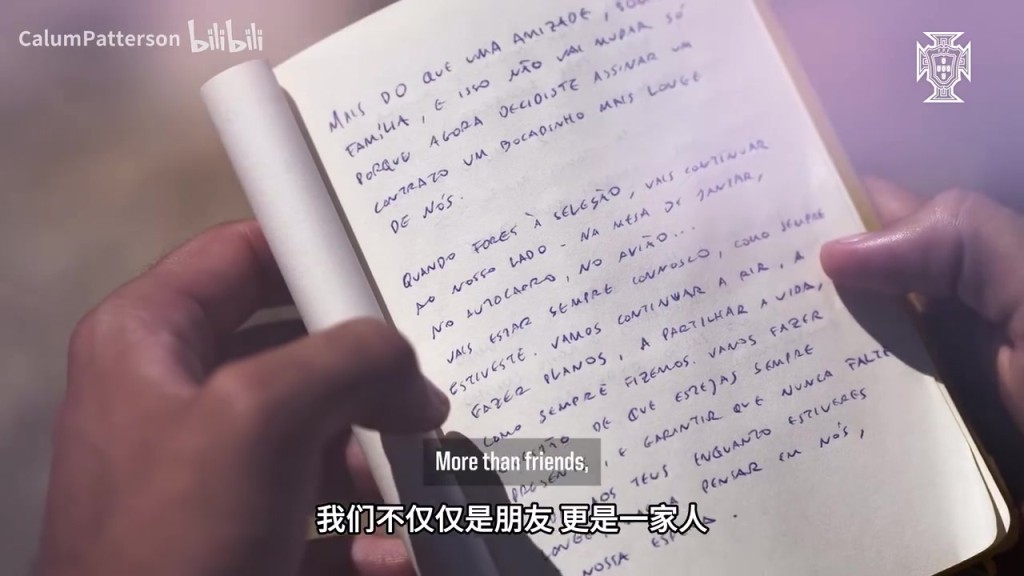 CalumPatterson bilibili
MAIS DO QUE UMA AMIZADE,
FAMÍLIA, E ISSO NÃO VAI MUDAR SÓ
PORQUE AGORA DECIDISTE ASSINAR UM
CONTRATO UM BOCADINHO MAIS LONGE
DE NÓS.
QUANDO FORES À SELEÇÃO, VAIS CONTINUAR
AO NOSSO LADO - NA MESA DE JANTAR,
NO AUTOCARRO, NO AVIÃO...
VAIS ESTAR SEMPRE CONNOSCO, COMO SEMPRE
ESTIVESTE. VAMOS CONTINUAR A RIR, A
FAZER PLANOS, A PARTILHAR A VIDA,
COMO SEMPRE FIZEMOS. VAMOS FAZER
DE QUE ESTEJAS SEMPRE
E GARANTIR QUE NUNCA FALTE
AOS TEUS ENQUANTO ESTIVERES
A PENSAR EM NÓS,
NOSSA
More than friends,
我们不仅仅是朋友 更是一家人